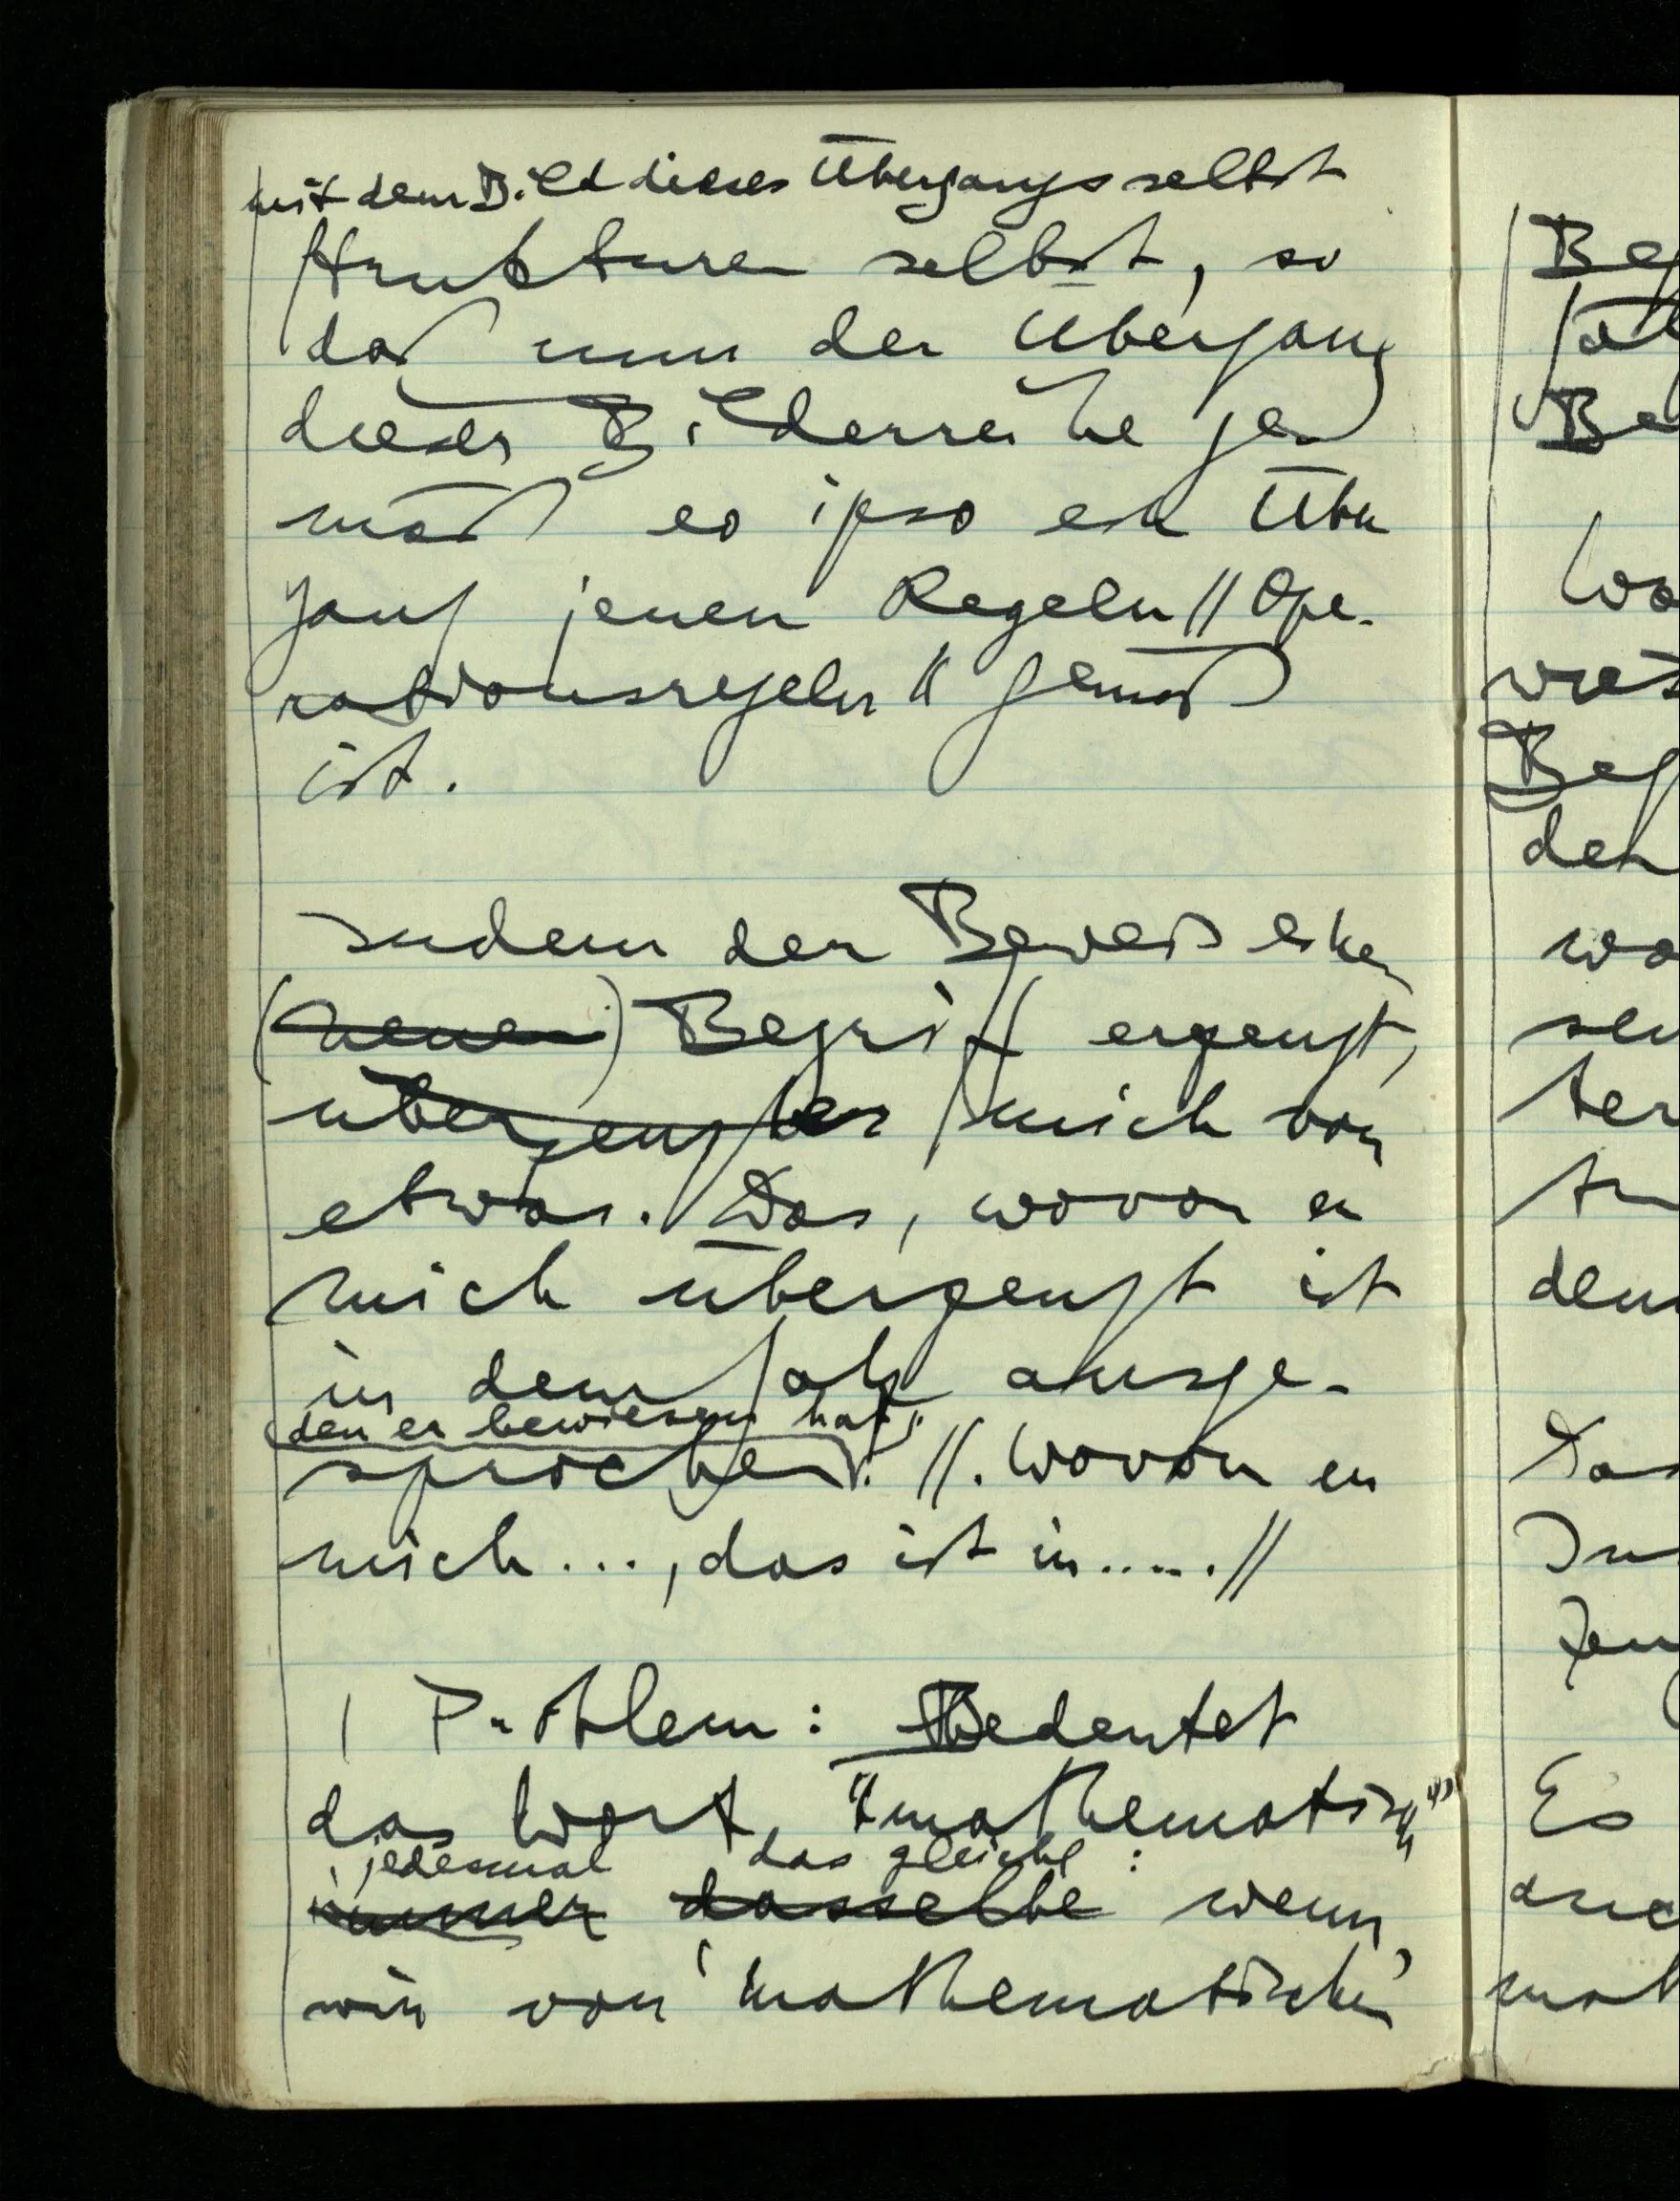 mit dem Bild dieses Übergangs selbst
struktur selbst, so
daß nun der Übergang
dieser Bilderreihe ge-
mäß eo ipso ein Über
gang jenen Regeln // Ope-
rationsregeln // gemäß
ist.
Indem der Beweis einen
(neuen) Begriff erzeugt,
überzeugt er mich von
etwas. Das, wovon er
mich überzeugt ist
in dem Satz ausge-
den er bewiesen hat,
sprochen. //. Wovon er
mich..., das ist in..... //
| Problem: Bedeutet
das Wort "mathematisch"
jedesmal das gleiche:
immer dasselbe wenn
wir von 'mathematischen'
Be
Be
wo
Be
den
wo
ter
den
Das
In
Es